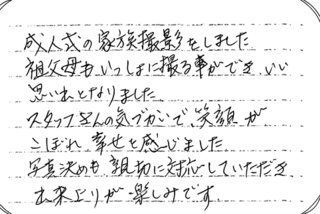 成人式の家族撮影をしました
祖父母もいっしょに撮る事ができ、いい
思い出となりました
スタッフさんの気づかいで、笑顔が
こぼれ、幸せと感じました
写真決めも、親切に対応していただき、
出来上りが楽しみです。